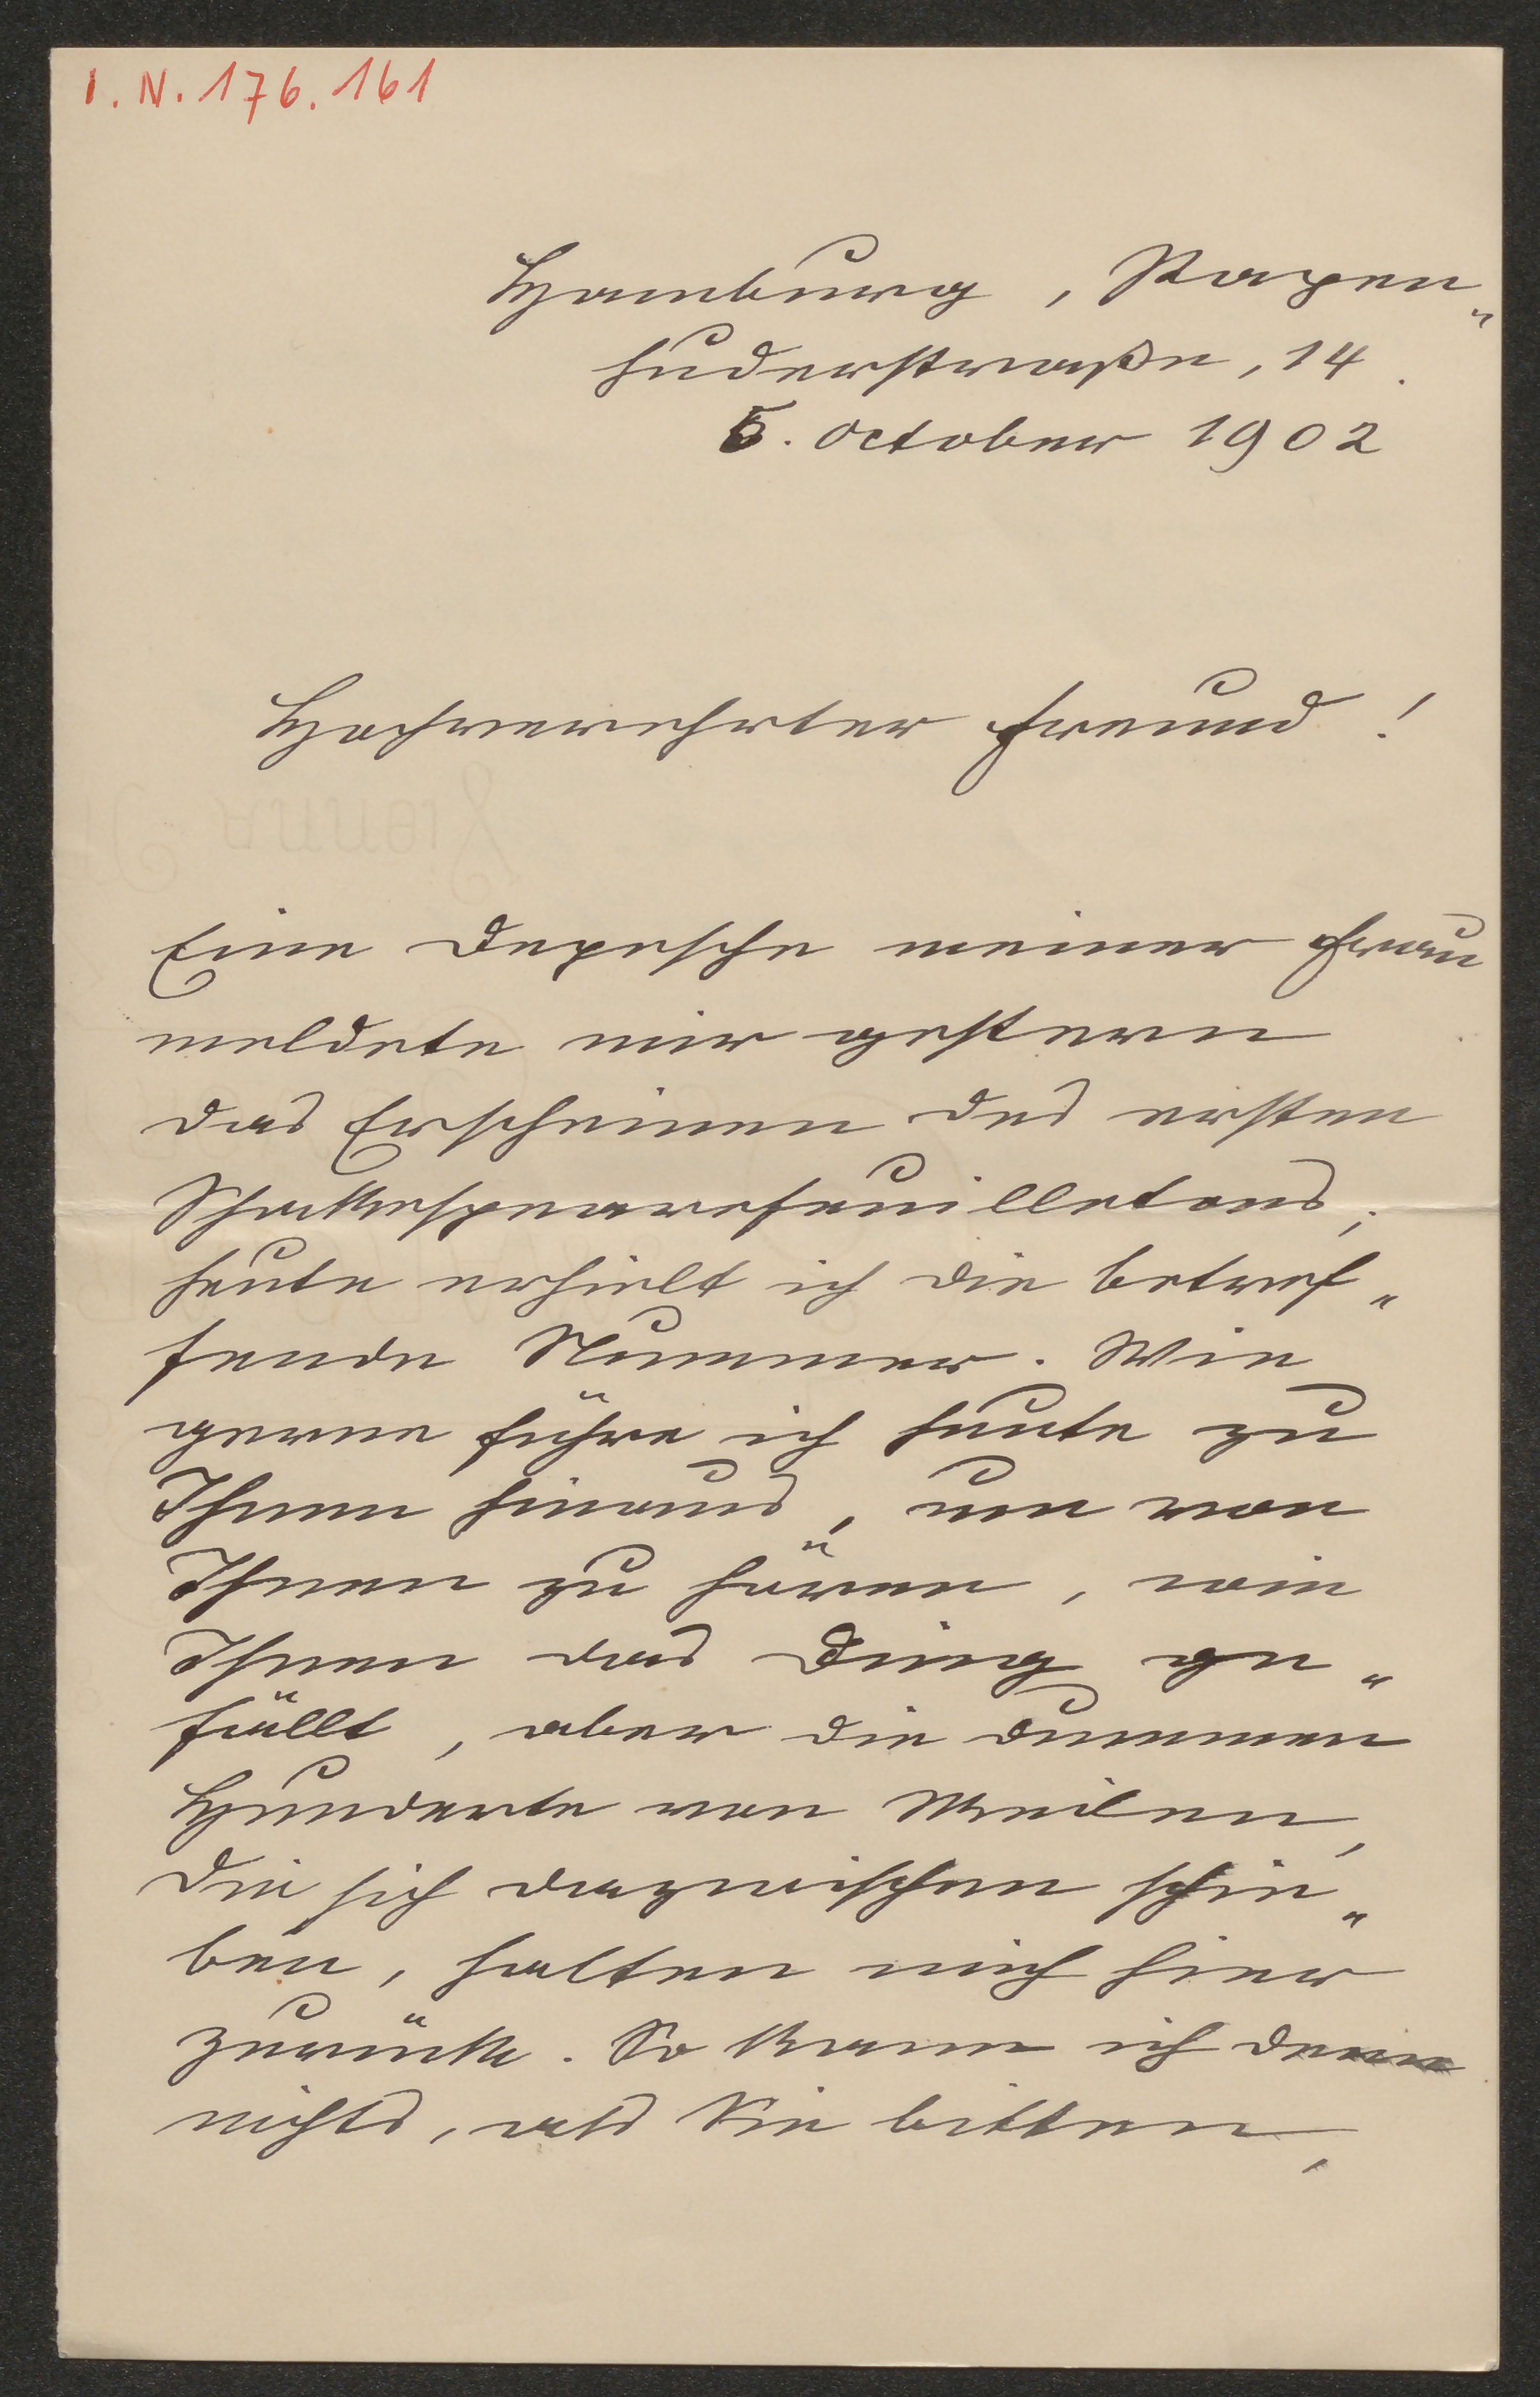 I. N. 176.161
Hamburg, Papen„
huderstraße, 14.
5. October 1902
Hochverehrter Freund!
Eine Depesche meiner Frau
meldete mir gestern
das Erscheinen des ersten
Shakespearefeuilletons;
heute erhielt ich die betref„
fende Nummer. Wie
gerne führe ich heute zu
Ihnen hinaus, um von
Ihnen zu hören, wie
Ihnen das Ding ge„
fällt, aber die dummen
Hunderte von Meilen,
die sich dazwischen schie„
ben, halten mich hier
zurück. So kann ich denn
nichts, als Sie bitten,